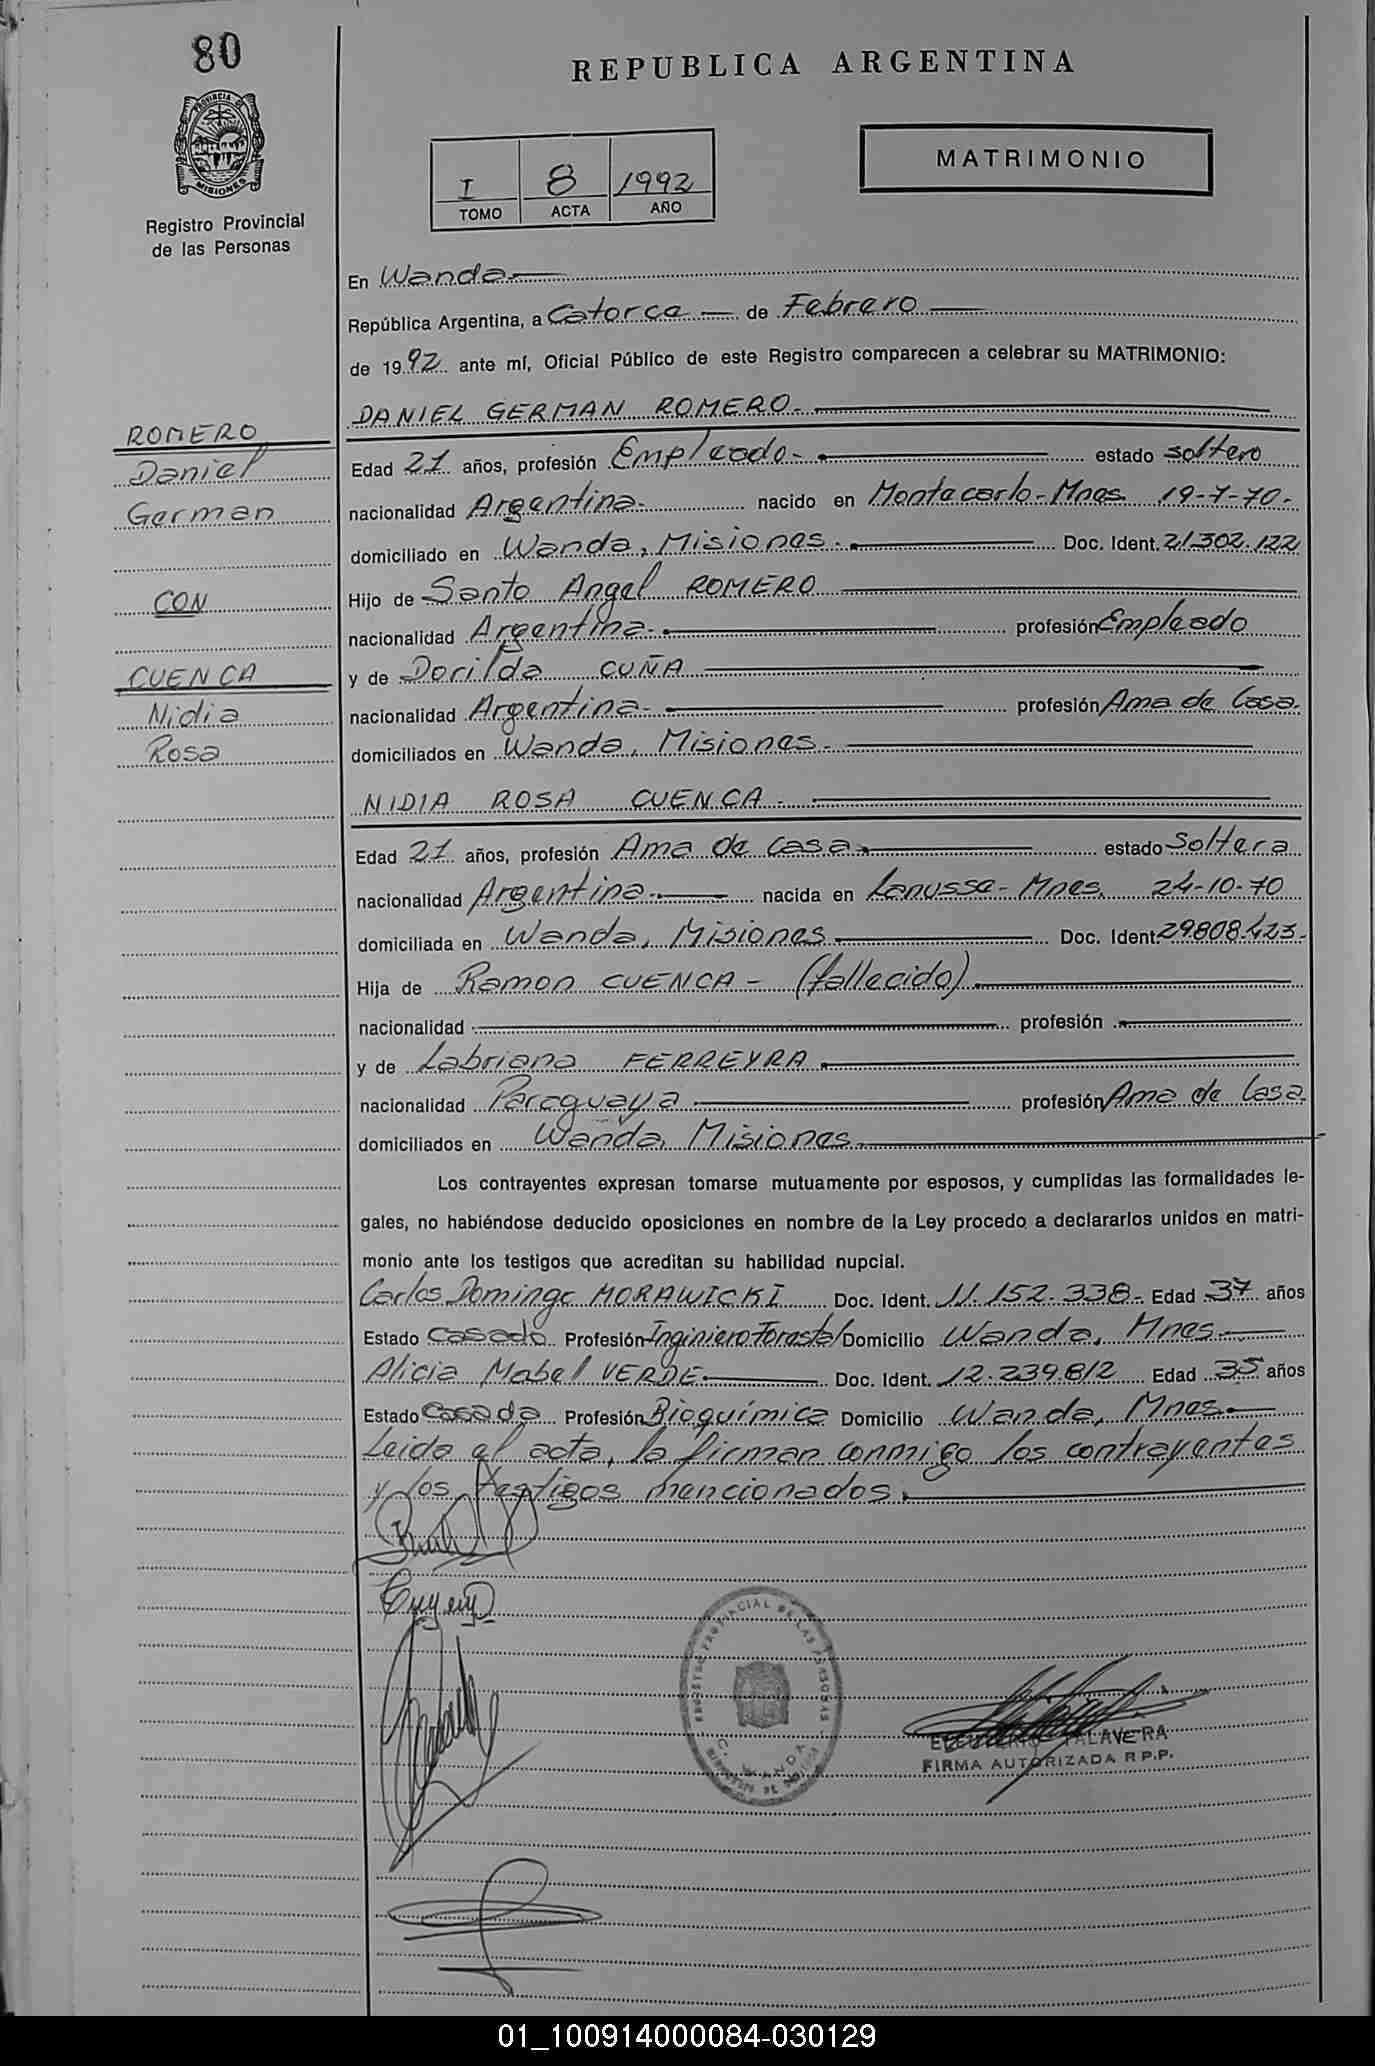 80
PROVINCIA DE
MISIONES
Registro Provincial
de las Personas
REPUBLICA ARGENTINA
I 8 1992
TOMO ACTA AÑO
MATRIMONIO
En Wanda
República Argentina, a Catorce de Febrero
de 1992 ante mí, Oficial Público de este Registro comparecen a celebrar su MATRIMONIO:
DANIEL GERMAN ROMERO.
ROMERO
Daniel
German
CON
CUENCA
Nidia
Rosa
Edad 21 años, profesión Empleado. estado soltero
nacionalidad Argentina. nacido en Montecarlo-Mnes. 19-7-70.
domiciliado en Wanda, Misiones. Doc. Ident. 21.302.122
Hijo de Santo Angel ROMERO
nacionalidad Argentina. profesión Empleado
y de Dorilda CUÑA
nacionalidad Argentina. profesión Ama de Casa.
domiciliados en Wanda, Misiones.
NIDIA ROSA CUENCA.
Edad 21 años, profesión Ama de Casa. estado Soltera
nacionalidad Argentina. nacida en Lanusse-Mnes. 24-10-70
domiciliada en Wanda, Misiones Doc. Ident. 29808.423.
Hija de Ramon CUENCA - (fallecido)
nacionalidad profesión
y de Labriana FERREYRA.
nacionalidad Paraguaya profesión Ama de Casa.
domiciliados en Wanda, Misiones.
Los contrayentes expresan tomarse mutuamente por esposos, y cumplidas las formalidades le-
gales, no habiéndose deducido oposiciones en nombre de la Ley procedo a declararlos unidos en matri-
monio ante los testigos que acreditan su habilidad nupcial.
Carlos Domingo MORAWICKI Doc. Ident. 11.152.338. Edad 37 años
Estado Casado Profesión Inginiero Forestal Domicilio Wanda, Mnes.
Alicia Mabel VERDE Doc. Ident. 12.239.812 Edad 35 años
Estado Casada Profesión Bioquímica Domicilio Wanda, Mnes.
Leida el acta, la firman conmigo los contrayentes
y los testigos mencionados.
REGISTRO PROVINCIAL DE LAS PERSONAS
WANDA
TALAVERA
FIRMA AUTORIZADA R.P.P.
01_100914000084-030129